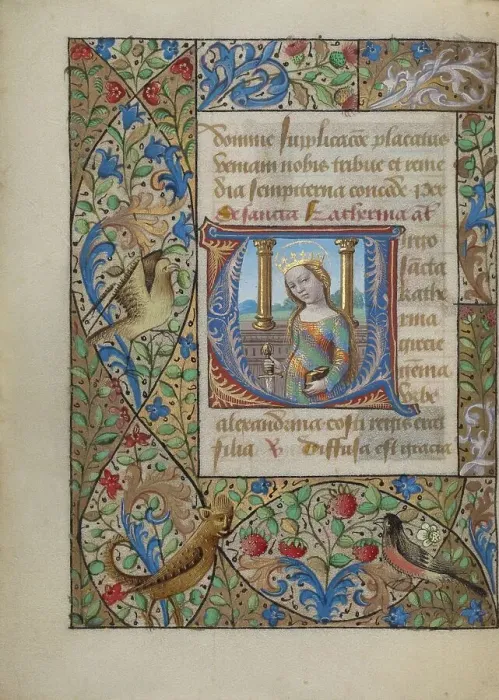 domine supplicacõe placatus
veniam nobis tribue et reme
dia sempiterna concede Per
De sancta Katherina añ
Virgo
sancta
Kathe
rina
grecie
gemma
urbe
alexandrina costi regis erat
filia ℣ Diffusa est gracia